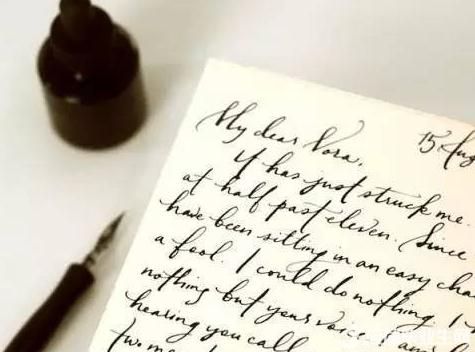 My dear Nora,
15 Aug
It has just struck me.
at half past eleven. Since
have been sitting in an easy cha
a fool. I could do nothing. I
nothing but your voice
hearing you call
two